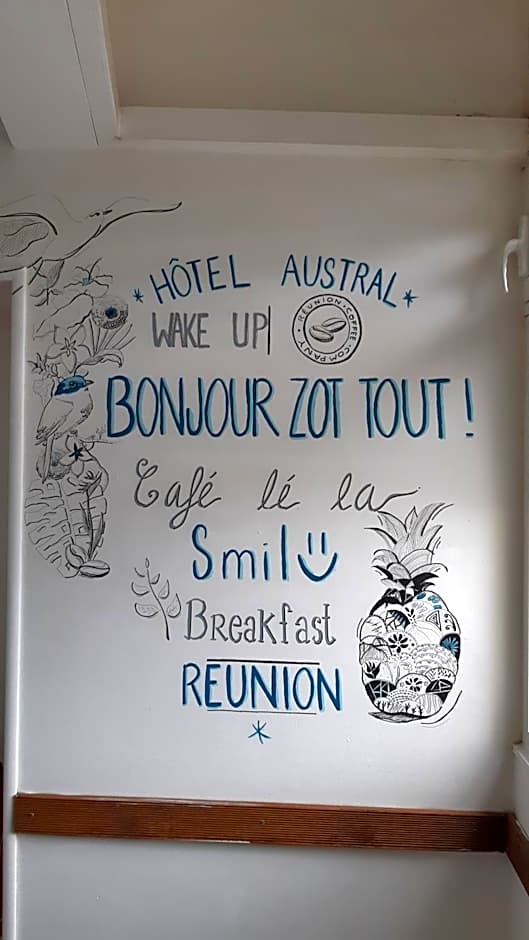 * HÔTEL AUSTRAL *
WAKE UP
RÉUNION • COFFEE COMPANY •
BONJOUR ZOT TOUT !
Café lé la
Smil
Breakfast
REUNION
*